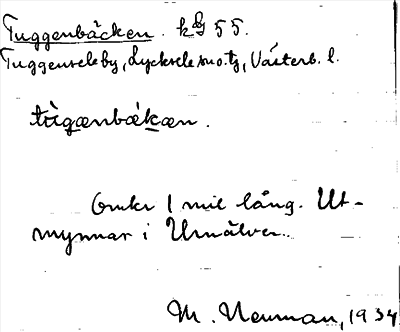 Tuggenbäcken. kg 55.
Tuggensele by, Lycksele sn o. tg, Västerb. l.
tùgænbækæn.
Omkr 1 mil lång. Ut-
mynnar i Umälven.
M. Neuman, 1934